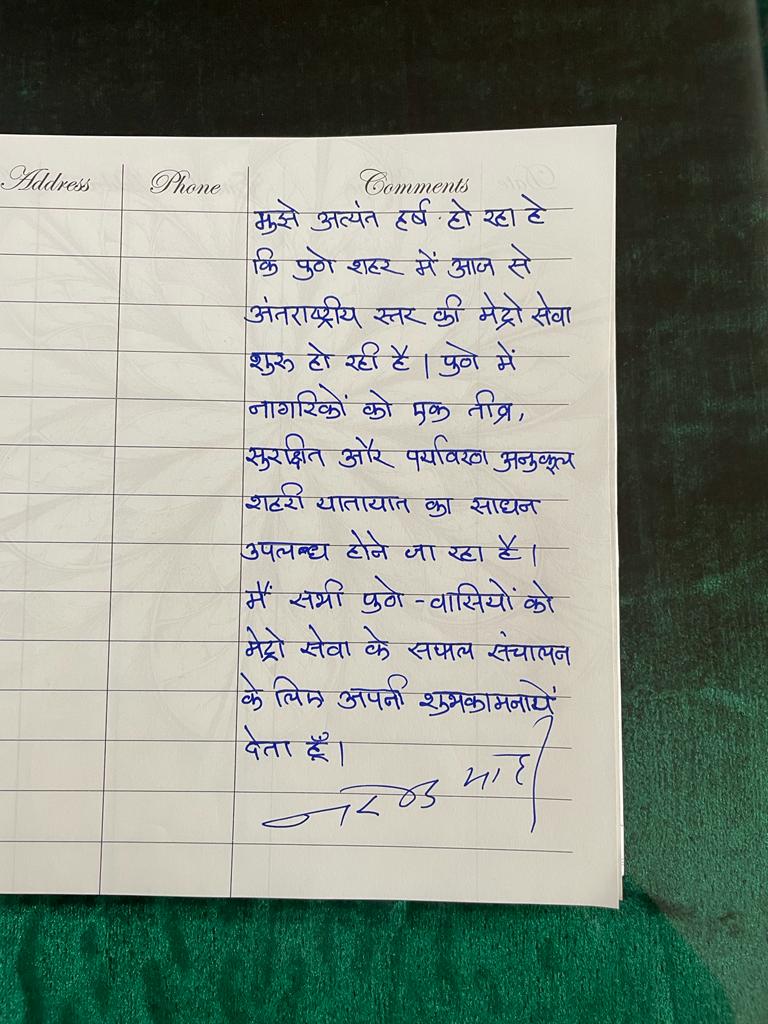 Address Phone Comments
मुझे अत्यंत हर्ष हो रहा है
कि पुणे शहर में आज से
अंतराष्ट्रीय स्तर की मेट्रो सेवा
शुरू हो रही है। पुणे में
नागरिकों को एक तीव्र,
सुरक्षित और पर्यावरण अनुकूल
शहरी यातायात का साधन
उपलब्ध होने जा रहा है।
मैं सभी पुणे-वासियों को
मेट्रो सेवा के सफल संचालन
के लिए अपनी शुभकामनायें
देता हूँ।